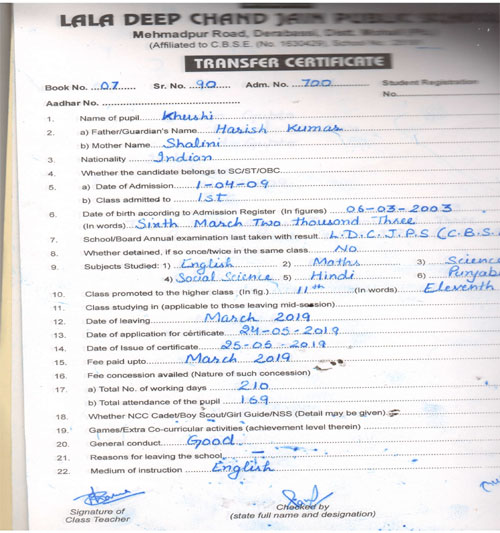 LALA DEEP CHAND JAIN PUBLIC
Mehmadpur Road, Derabassi, Distt.
(Affiliated to C.B.S.E. (No. 1630429), School
TRANSFER CERTIFICATE
Book No. ..07.. Sr. No. ..90.. Adm. No. ..700.. Student Registration
Aadhar No. No.
1. Name of pupil Khushi
2. a) Father/Guardian's Name Harish Kumar
b) Mother Name Shalini
3. Nationality Indian
4. Whether the candidate belongs to SC/ST/OBC
5. a) Date of Admission 1-04-09
b) Class admitted to 1st
6. Date of birth according to Admission Register (In figures) 06-03-2003
(In words) Sixth March Two thousand Three
7. School/Board Annual examination last taken with result L.D.C.J.P.S (C.B.S.
8. Whether detained, if so once/twice in the same class No
9. Subjects Studied: 1) English 2) Maths 3) Science
4) Social Science 5) Hindi 6) Punjab
10. Class promoted to the higher class (In fig.) 11th (In words) Eleventh
11. Class studying in (applicable to those leaving mid-session)
12. Date of leaving March 2019
13. Date of application for certificate 24-05-2019
14. Date of Issue of certificate 25-05-2019
15. Fee paid upto March 2019
16. Fee concession availed (Nature of such concession)
17. a) Total No. of working days 210
b) Total attendance of the pupil 169
18. Whether NCC Cadet/Boy Scout/Girl Guide/NSS (Detail may be given)
19. Games/Extra Co-curricular activities (achievement level therein)
20. General conduct Good
21. Reasons for leaving the school
22. Medium of instruction English
Signature of Checked by
Class Teacher (state full name and designation)